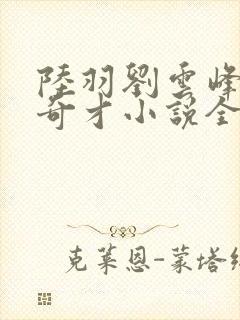 陸羽劉雲峰
奇才小說全
克萊恩-蒙塔